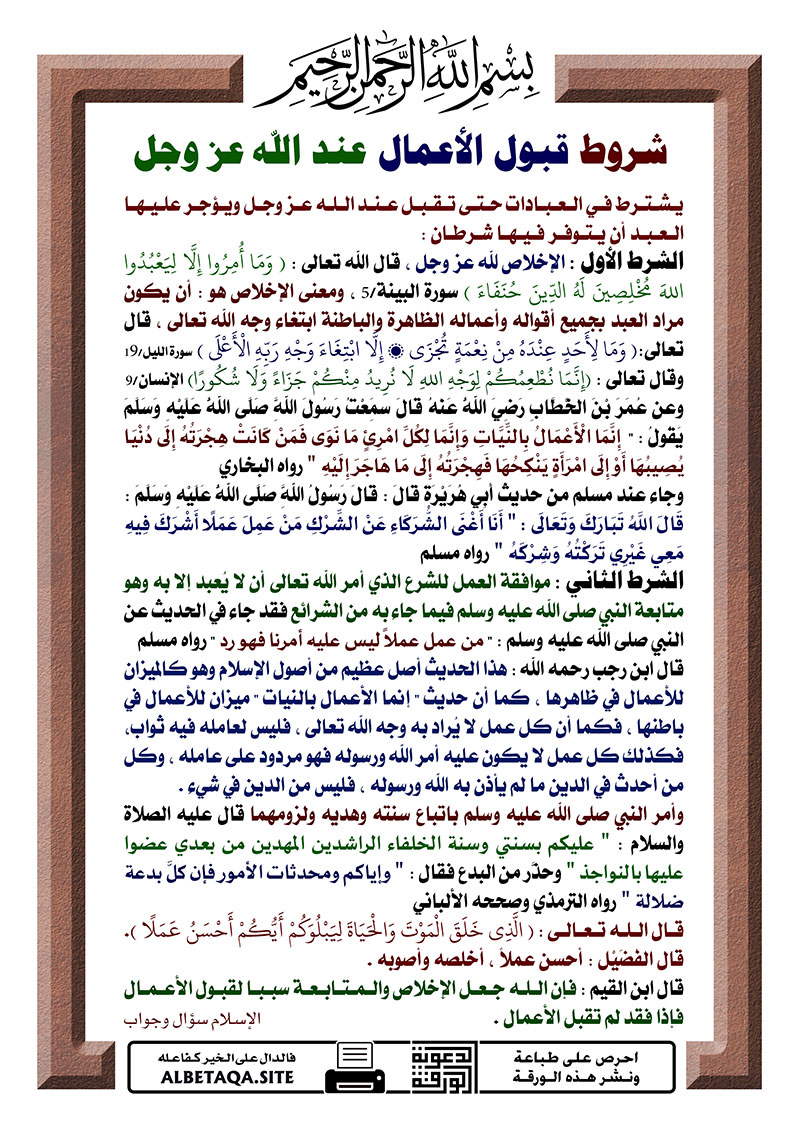 بِسْمِ اللَّهِ الرَّحْمَنِ الرَّحِيمِ
شروط قبول الأعمال عند الله عز وجل
يشترط في العبادات حتى تقبل عند الله عز وجل ويؤجر عليها
العبد أن يتوفر فيها شرطان :
الشرط الأول : الإخلاص لله عز وجل ، قال الله تعالى : ( وَمَا أُمِرُوا إِلَّا لِيَعْبُدُوا
اللهَ مُخْلِصِينَ لَهُ الدِّينَ حُنَفَاءَ ) سورة البينة/5 ، ومعنى الإخلاص هو : أن يكون
مراد العبد بجميع أقواله وأعماله الظاهرة والباطنة ابتغاء وجه الله تعالى ، قال
تعالى:( وَمَا لِأَحَدٍ عِنْدَهُ مِنْ نِعْمَةٍ تُجْزَى ۞ إِلَّا ابْتِغَاءَ وَجْهِ رَبِّهِ الْأَعْلَى ) سورة الليل/19
وقال تعالى : (إِنَّمَا نُطْعِمُكُمْ لِوَجْهِ اللهِ لَا نُرِيدُ مِنْكُمْ جَزَاءً وَلَا شُكُورًا) الإنسان/9
وعن عُمَرَ بْنَ الْخَطَّابِ رَضِيَ اللَّهُ عَنهُ قالَ سَمِعْتُ رَسُولَ اللَّهِ صَلَّى اللَّهُ عَلَيْهِ وَسَلَّمَ
يَقُولُ : " إِنَّمَا الْأَعْمَالُ بِالنِّيَّاتِ وَإِنَّمَا لِكُلِّ امْرِئٍ مَا نَوَى فَمَنْ كَانَتْ هِجْرَتُهُ إِلَى دُنْيَا
يُصِيبُهَا أَوْ إِلَى امْرَأَةٍ يَنْكِحُهَا فَهِجْرَتُهُ إِلَى مَا هَاجَرَ إِلَيْهِ " رواه البخاري
وجاء عند مسلم من حديث أبي هُرَيْرَةَ قَالَ : قَالَ رَسُولُ اللَّهِ صَلَّى اللَّهُ عَلَيْهِ وَسَلَّمَ :
قَالَ اللَّهُ تَبَارَكَ وَتَعَالَى : " أَنَا أَغْنَى الشُّرَكَاءِ عَنْ الشِّرْكِ مَنْ عَمِلَ عَمَلًا أَشْرَكَ فِيهِ
مَعِي غَيْرِي تَرَكْتُهُ وَشِرْكَهُ " رواه مسلم
الشرط الثاني : موافقة العمل للشرع الذي أمر الله تعالى أن لا يُعبد إلا به وهو
متابعة النبي صلى الله عليه وسلم فيما جاء به من الشرائع فقد جاء في الحديث عن
النبي صلى الله عليه وسلم : " من عمل عملاً ليس عليه أمرنا فهو رد " رواه مسلم
قال ابن رجب رحمه الله : هذا الحديث أصل عظيم من أصول الإسلام وهو كالميزان
للأعمال في ظاهرها ، كما أن حديث " إنما الأعمال بالنيات " ميزان للأعمال في
باطنها ، فكما أن كل عمل لا يُراد به وجه الله تعالى ، فليس لعامله فيه ثواب،
فكذلك كل عمل لا يكون عليه أمر الله ورسوله فهو مردود على عامله ، وكل
من أحدث في الدين ما لم يأذن به الله ورسوله ، فليس من الدين في شيء .
وأمر النبي صلى الله عليه وسلم باتباع سنته وهديه ولزومهما قال عليه الصلاة
والسلام : " عليكم بسنتي وسنة الخلفاء الراشدين المهدين من بعدي عضوا
عليها بالنواجذ " وحذَّر من البدع فقال : " وإياكم ومحدثات الأمور فإن كلَّ بدعة
ضلالة " رواه الترمذي وصححه الألباني
قال الله تعالى : ( الَّذِي خَلَقَ الْمَوْتَ وَالْحَيَاةَ لِيَبْلُوَكُمْ أَيُّكُمْ أَحْسَنُ عَمَلًا ).
قال الفضَيْل : أحسن عملاً ، أخلصه وأصوبه .
قال ابن القيم : فإن الله جعل الإخلاص والمتابعة سببا لقبول الأعمال
فإذا فقد لم تقبل الأعمال .
الإسلام سؤال وجواب
احرص على طباعة
ونشر هذه الورقة
الورقة الدعوية
فالدال على الخير كفاعله
ALBETAQA.SITE